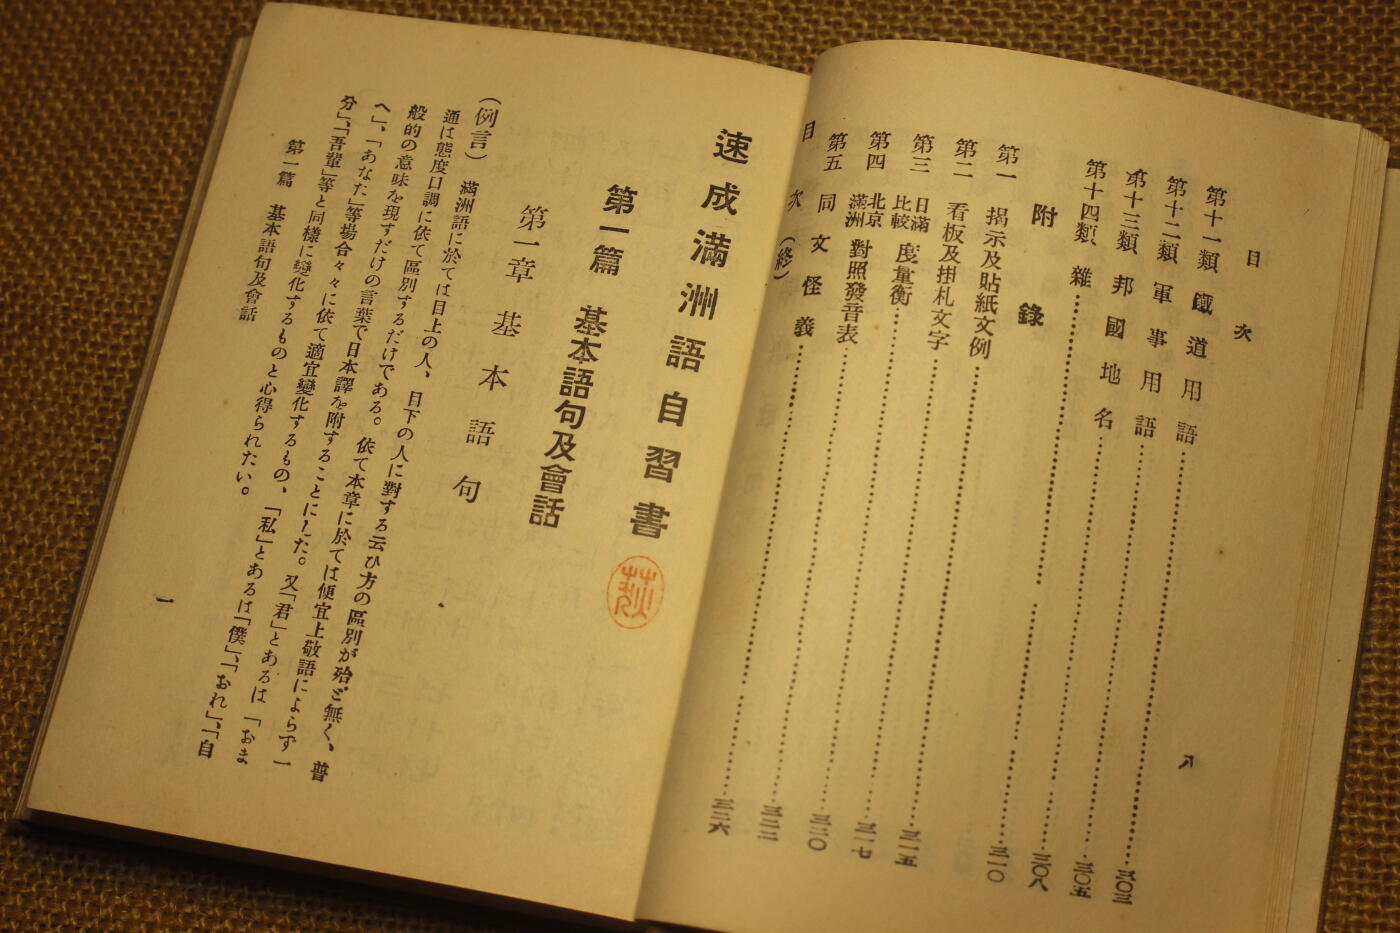 目次
八
第十一類 鐵道用語……三〇三
第十二類 軍事用語……三〇五
第十三類 邦國地名……三〇八
第十四類 雜……三一〇
附錄
第一 揭示及貼紙文例……三一五
第二 看板及掛札文字……三一七
第三 日滿比較度量衡……三二〇
第四 北京滿洲對照發音表……三二二
第五 同文怪義……三二六
目次(終)
速成滿洲語自習書
第一篇 基本語句及會話
第一章 基本語句
(例言) 滿洲語に於ては目上の人、目下の人に對する云ひ方の區別が殆ど無く、普
通は態度口調に依て區別するだけである。依て本章に於ては便宜上敬語によらず一
般的の意味を現すだけの言葉で日本譯を附することにした。又「君」とあるは「おま
へ」、「あなた」等場合々々に依て適宜變化するもの、「私」とあるは「僕」、「おれ」、「自
分」、「吾輩」等と同樣に變化するものと心得られたい。
第一篇 基本語句及會話
一